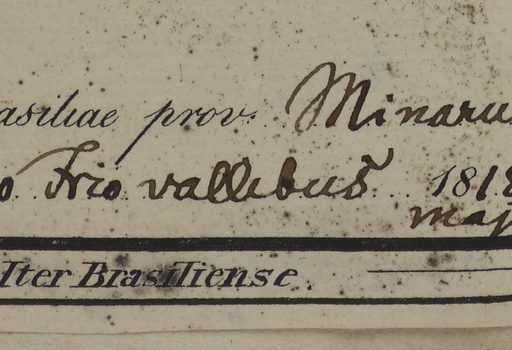 asiliae prov. Minaru
o Frio vallibus 1818
maj
Iter Brasiliense.